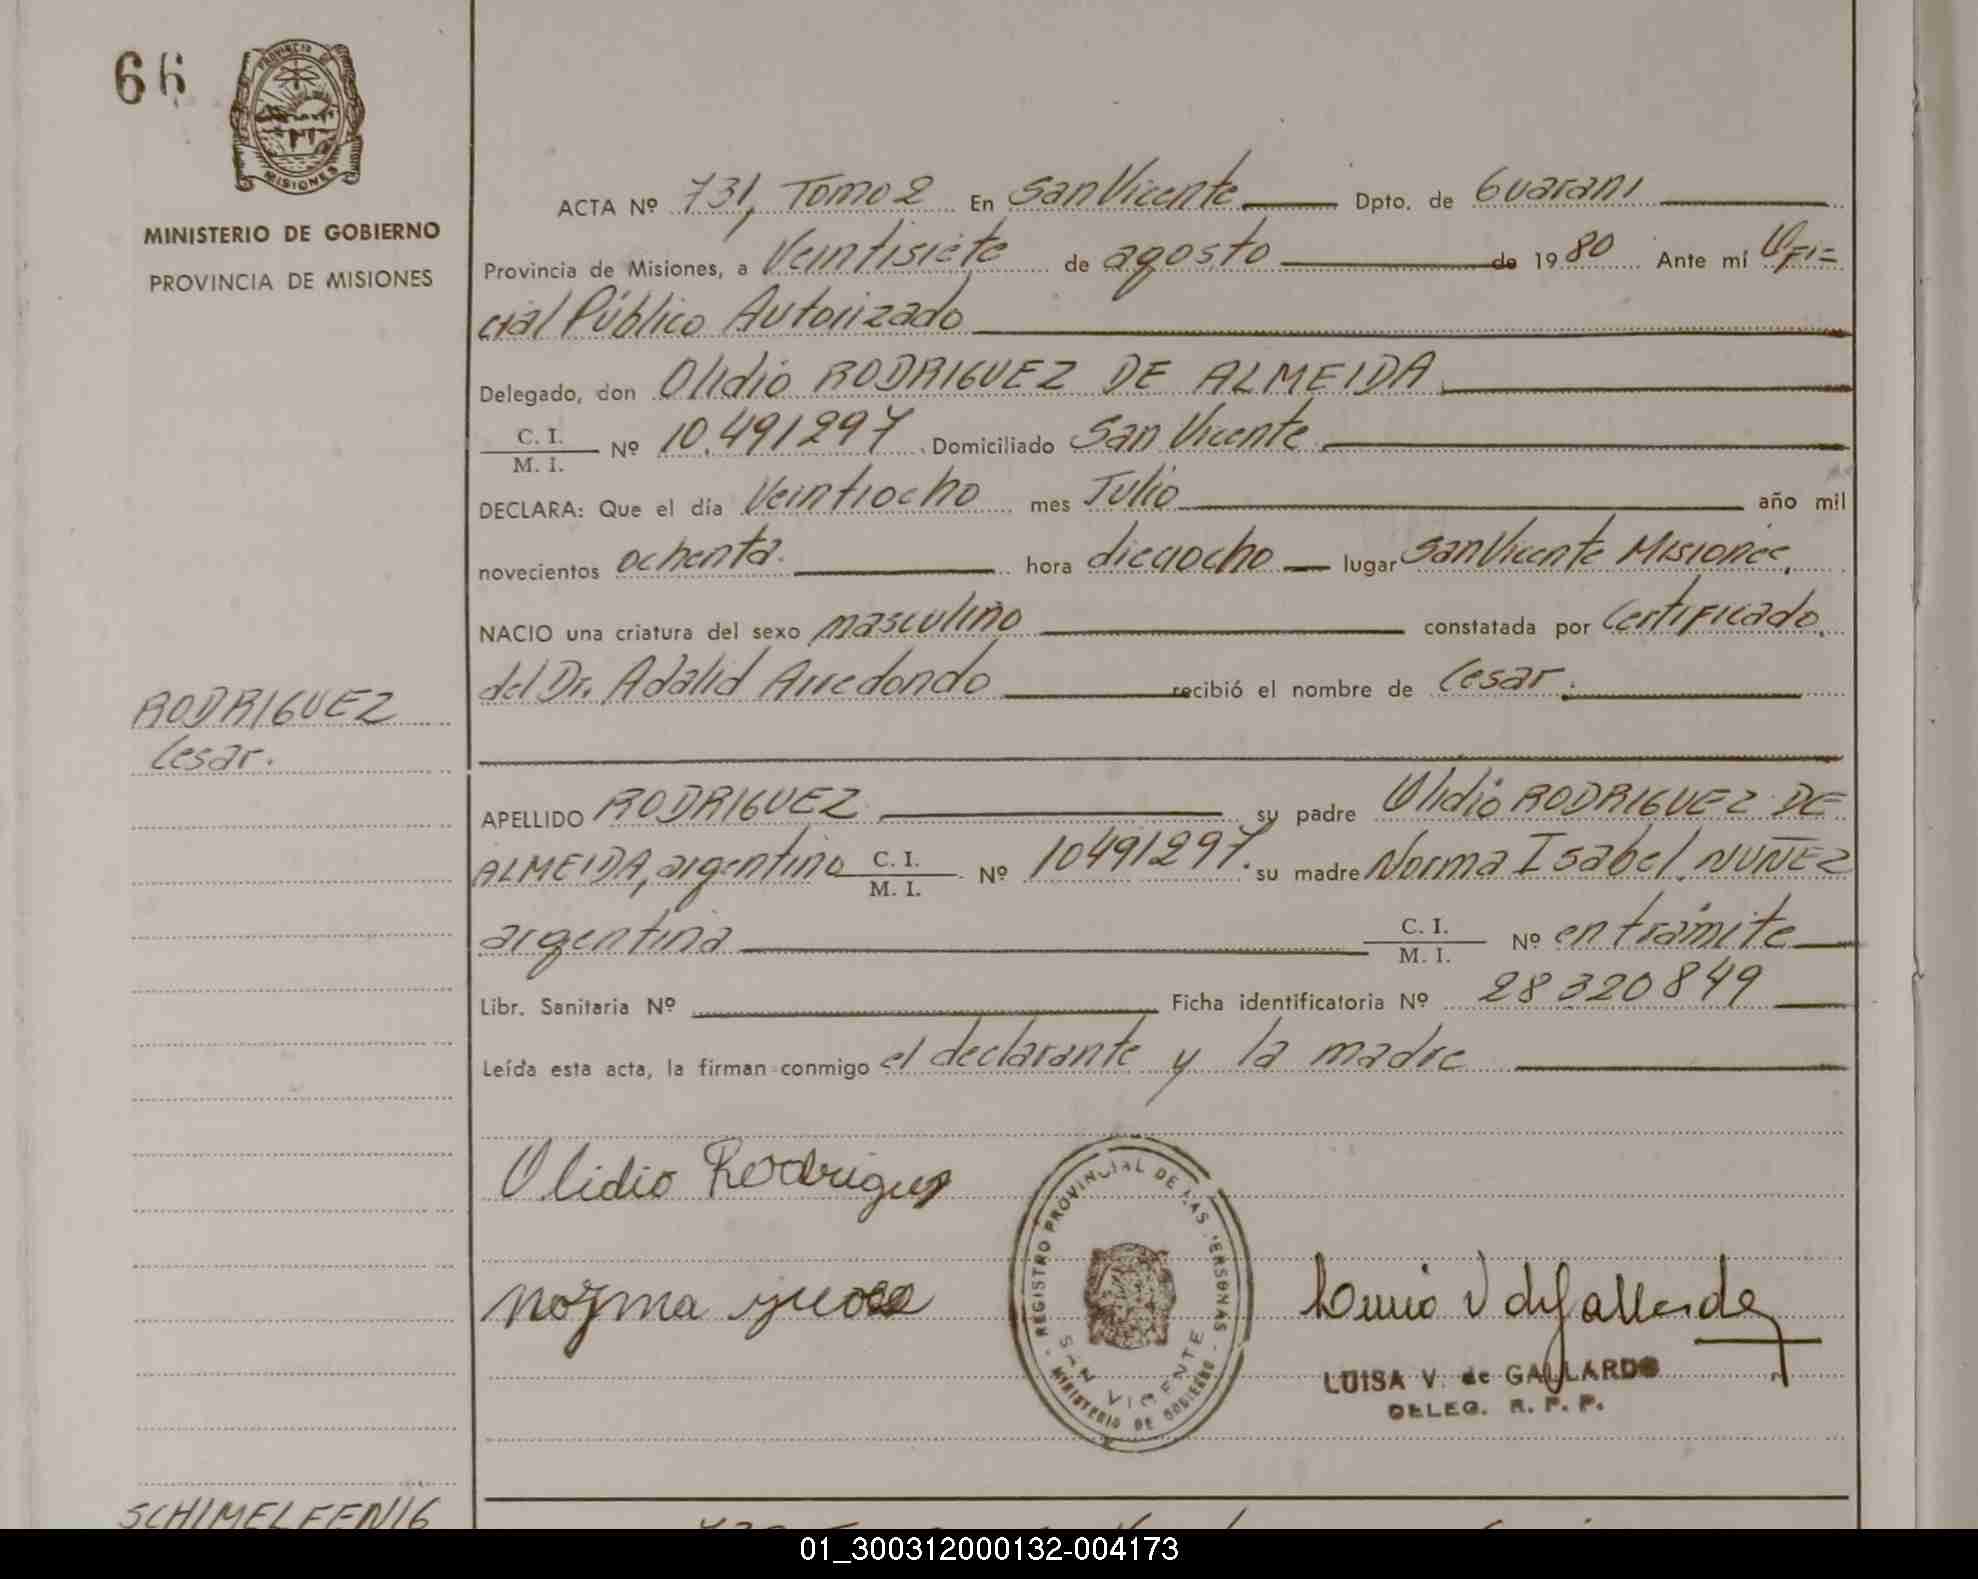 66
PROVINCIA DE
MISIONES
MINISTERIO DE GOBIERNO
PROVINCIA DE MISIONES
ACTA Nº 731, Tomo 2 En San Vicente Dpto. de Guarani
Provincia de Misiones, a Veintisiete de agosto de 1980 Ante mí Ofi=
cial Público Autorizado
Delegado, don Olidio RODRIGUEZ DE ALMEIDA
C. I.
M. I. Nº 10.491297 Domiciliado San Vicente
DECLARA: Que el día Veintiocho mes Julio año mil
novecientos ochenta. hora dieciocho lugar San Vicente Misiones,
NACIO una criatura del sexo masculino constatada por Certificado
del Dr. Adalid Arredondo recibió el nombre de Cesar.
RODRIGUEZ
Cesar.
APELLIDO RODRIGUEZ su padre Olidio RODRIGUEZ DE
ALMEIDA, argentino C. I. M. I. Nº 10491297. su madre Norma Isabel NUÑEZ
argentina C. I. M. I. Nº en trámite
Libr. Sanitaria Nº Ficha identificatoria Nº 28320849
Leída esta acta, la firman conmigo el declarante y la madre
Olidio Rodriguez
Norma
REGISTRO PROVINCIAL DE LAS PERSONAS
SAN VICENTE
MINISTERIO DE GOBIERNO
Luisa V de Gallardo
LUISA V. de GALLARDO
DELEG. R. P. P.
SCHIMELFENIG
01_300312000132-004173